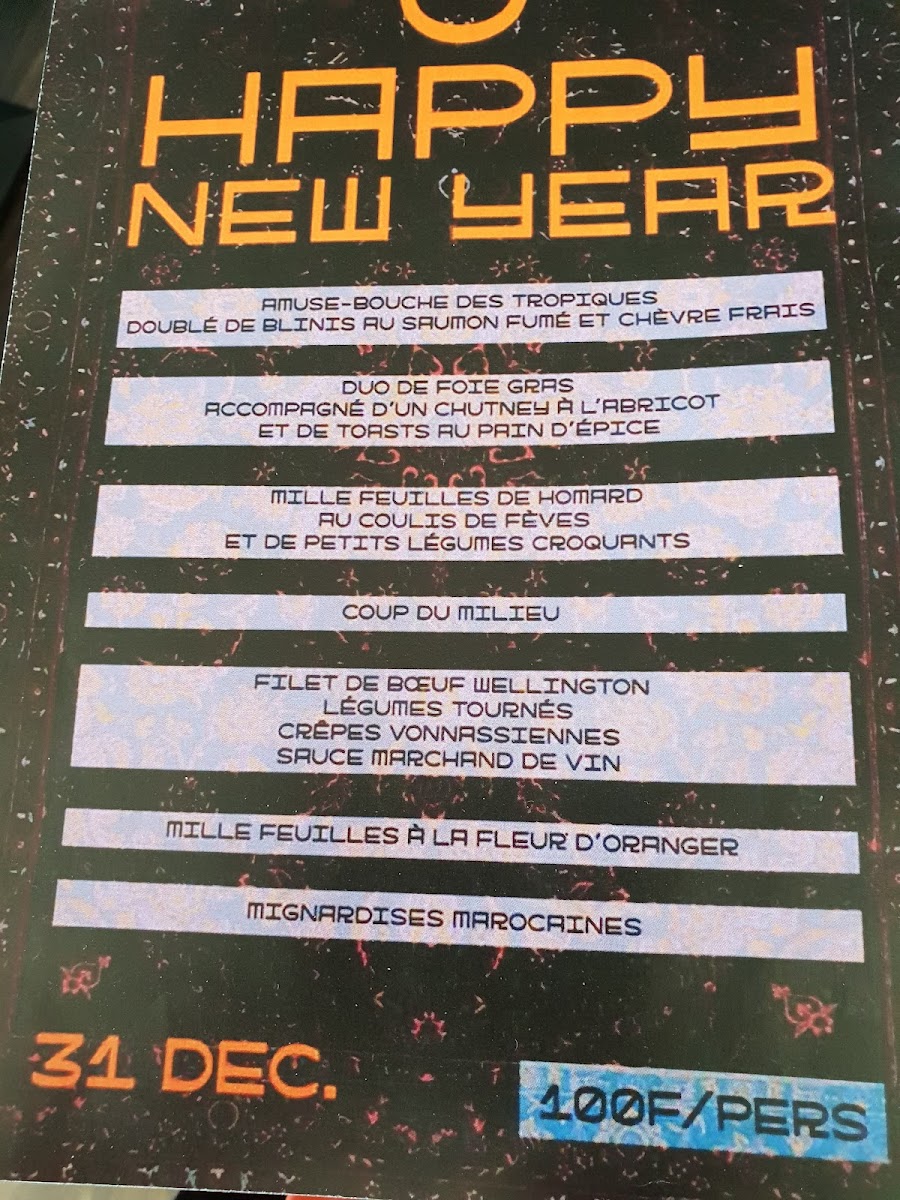 HAPPY
NEW YEAR
AMUSE-BOUCHE DES TROPIQUES
DOUBLÉ DE BLINIS AU SAUMON FUMÉ ET CHÈVRE FRAIS
DUO DE FOIE GRAS
ACCOMPAGNÉ D'UN CHUTNEY À L'ABRICOT
ET DE TOASTS AU PAIN D'ÉPICE
MILLE FEUILLES DE HOMARD
AU COULIS DE FÈVES
ET DE PETITS LÉGUMES CROQUANTS
COUP DU MILIEU
FILET DE BŒUF WELLINGTON
LÉGUMES TOURNÉS
CRÊPES VONNASSIENNES
SAUCE MARCHAND DE VIN
MILLE FEUILLES À LA FLEUR D'ORANGER
MIGNARDISES MAROCAINES
31 DEC.
100F/PERS